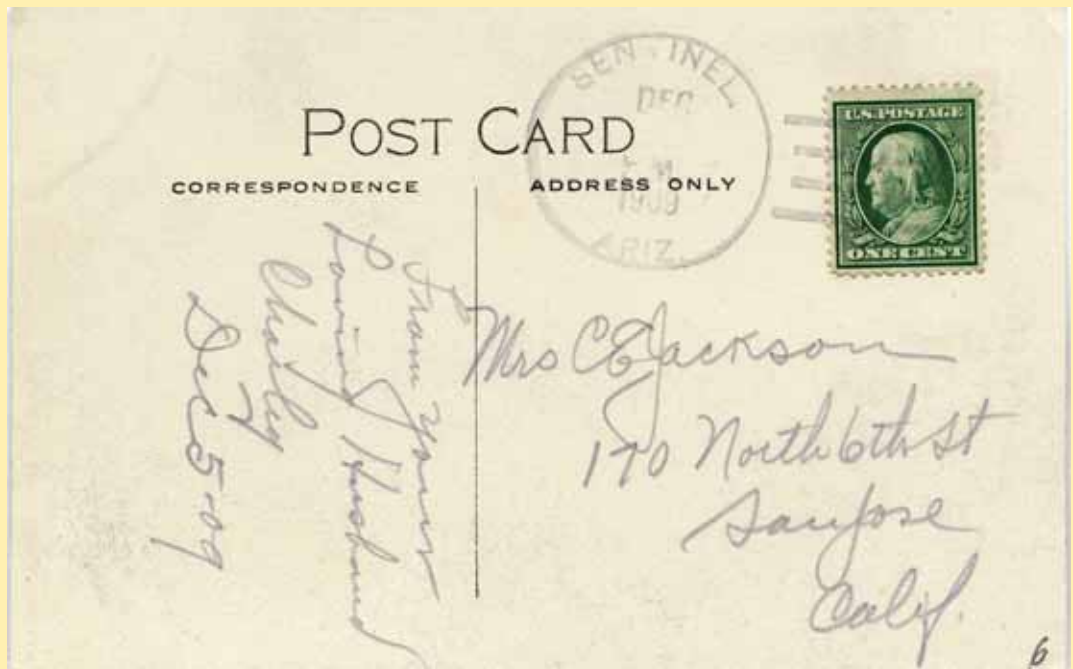 POST CARD
CORRESPONDENCE
ADDRESS ONLY
SENTINEL
DEC
1909
ARIZ.
U.S. POSTAGE
ONE CENT
From Your
Loving Husband
Charley
Dec 5-09
Mrs C E Jackson
170 North 6th St
San Jose
Calif.
6